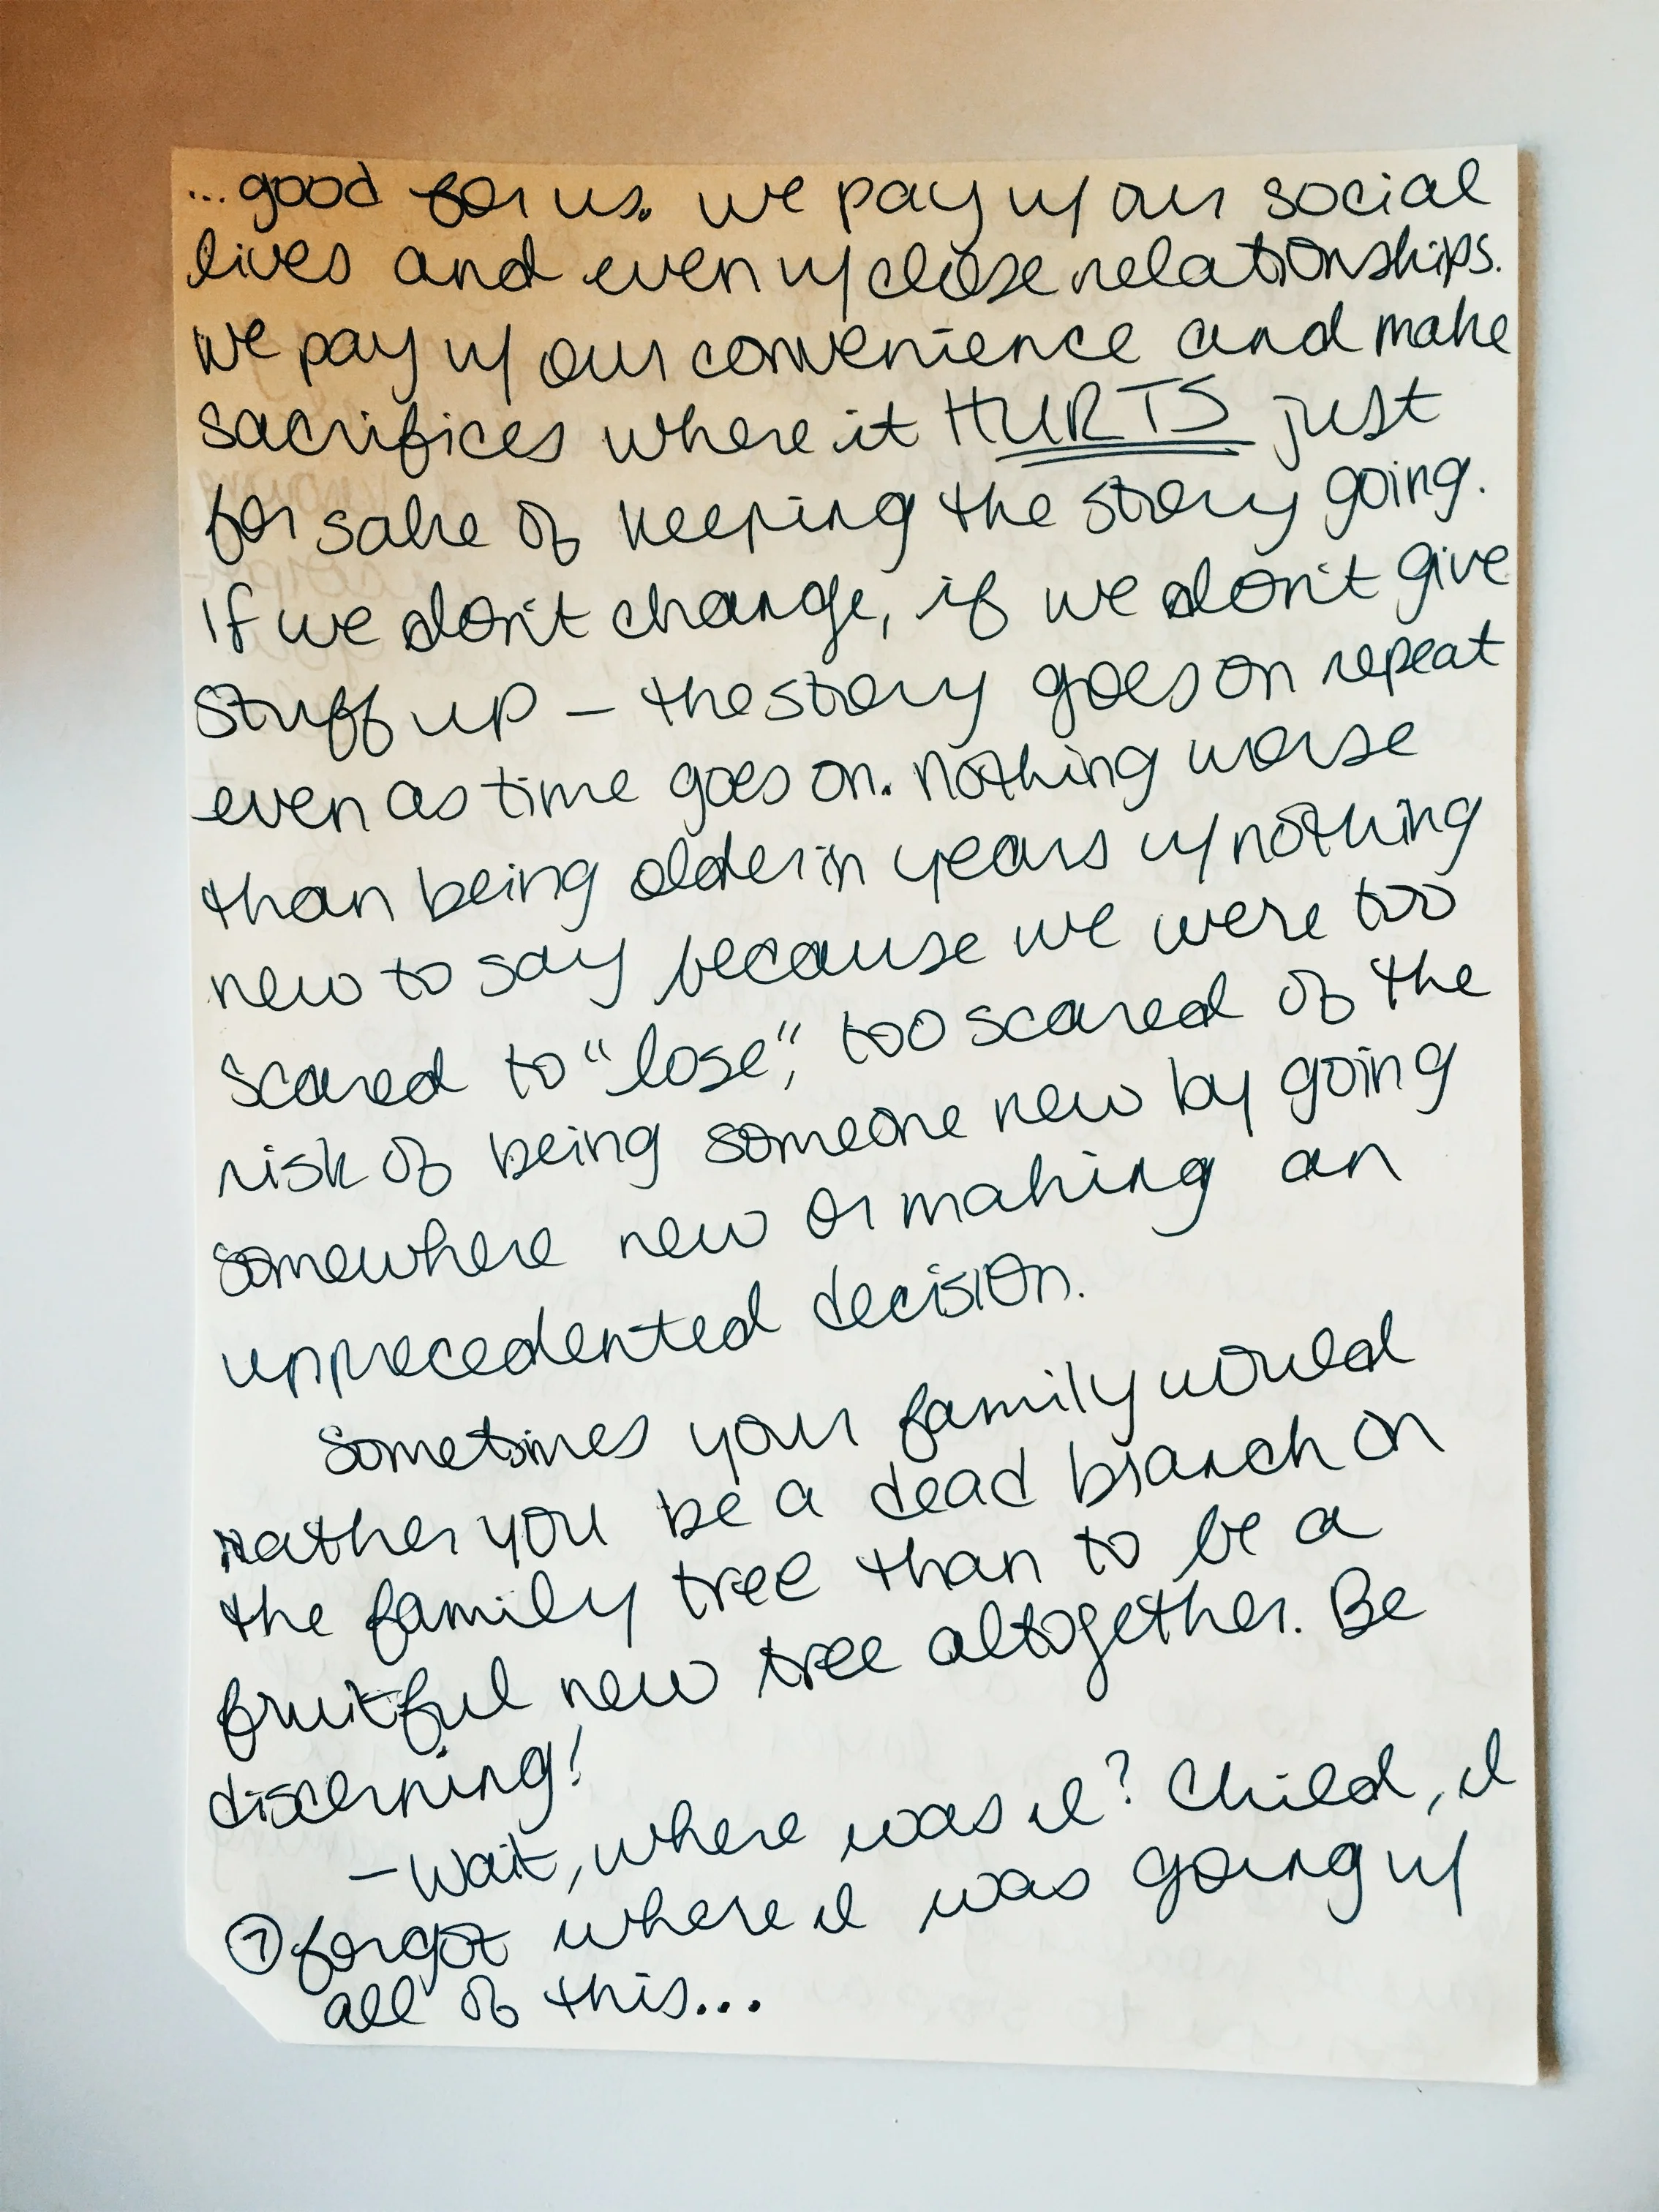 ...good for us. we pay w/ our social
lives and even w/ close relationships.
we pay w/ our convenience and make
sacrifices where it HURTS just
for sake of keeping the story going.
If we don't change, if we don't give
stuff up – the story goes on repeat
even as time goes on. nothing worse
than being older in years w/ nothing
new to say because we were too
scared to "lose", too scared of the
risk of being someone new by going
somewhere new or making an
unprecedented decision.
Sometimes your family would
rather you be a dead branch on
the family tree than to be a
fruitful new tree altogether. Be
discerning!
– Wait, where was I? Child, I
⑦ forgot where I was going w/
all of this...